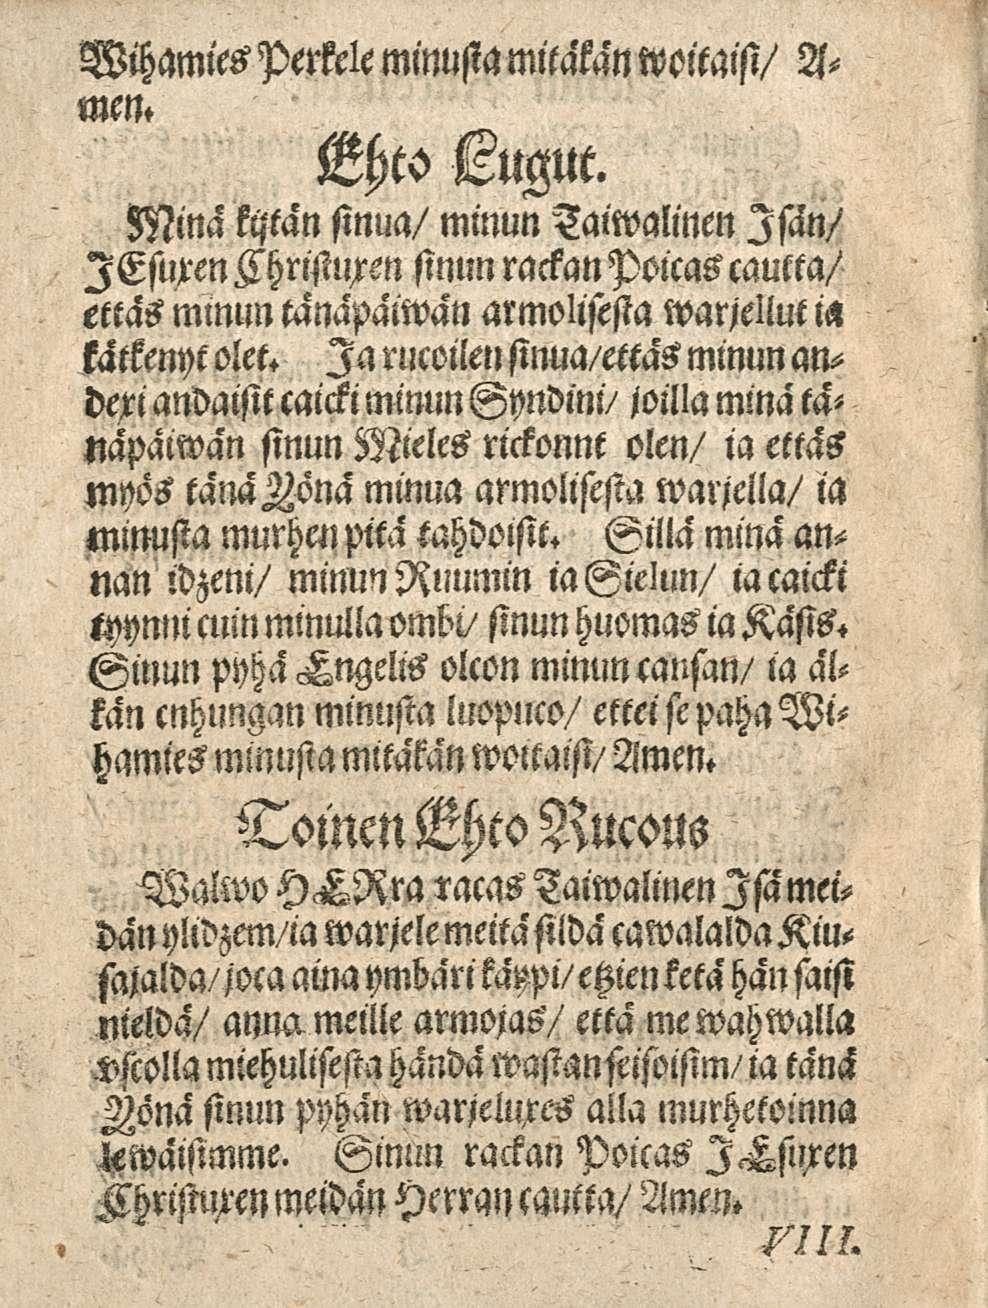 Wihamies Perkele minusta mitäkän woitaisi/ A-
men.
Ehto Lugut.
Minä kijtän sinua/ minun Taiwalinen Isän/
JEsuxen Christuxen sinun rackan Poicas cautta/
ettäs minun tänäpäiwän armolisesta warjellut ia
kätkenyt olet. Ja rucoilen sinua/ettäs minun an-
dexi andaisit caicki minun Syndini/ joilla minä tä-
näpäiwän sinun Mieles rickonnt olen/ ia ettäs
myös tänä Yönä minua armolisesta warjella/ ia
minusta murhen pitä tahdoisit. Sillä minä an-
nan idzeni/ minun Ruumin ia Sielun/ ia caicki
tyynni cuin minulla ombi/ sinun huomas ia Käsis.
Sinun pyhä Engelis olcon minun cansan/ ia äl-
kän cuhungan minusta luopuco/ ettei se paha Wi-
hamies minusta mitäkän woitaisi/ Amen.
Toinen Ehto Rucous
Walwo HERra racas Taiwalinen Isä mei-
dän ylidzem/ia warjele meitä sildä cawalalda Kiu-
sajalda/joca aina ymbäri käypi/etzien ketä hän saisi
nieldä/ anna meille armojas/ että me wahwalla
vscolla miehulisesta händä wastan seisoisim/ia tänä
Yönä sinun pyhän warjeluxes alla murhetoinna
lewäisimme. Sinun rackan Poicas JEsuxen
Christuxen meidän Herran cautta/ Amen.
VIII.